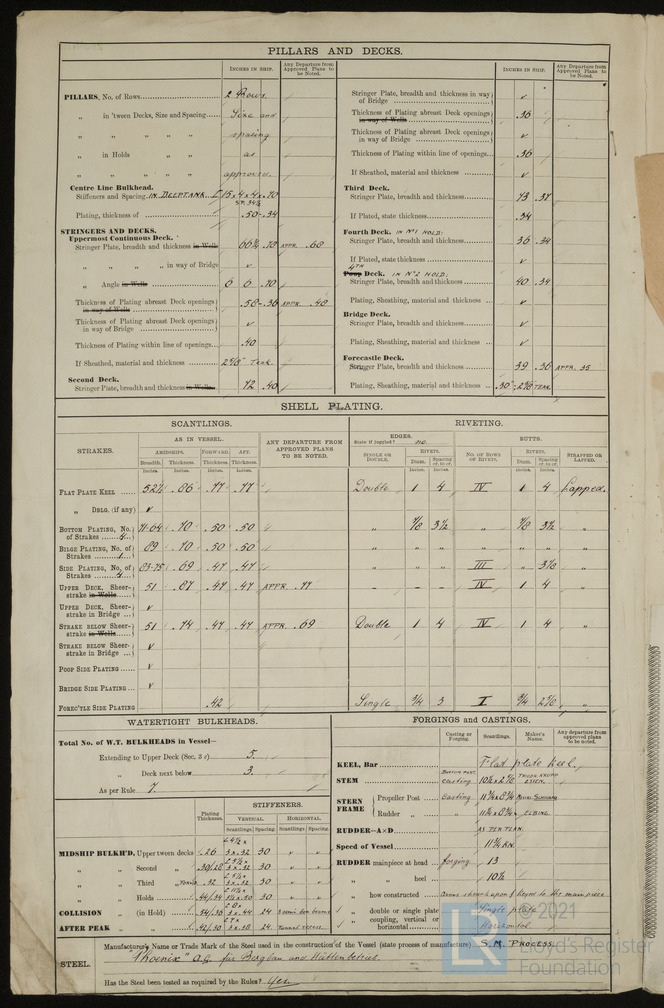 PILLARS AND DECKS.
INCHES IN SHIP.
Any Departure from Approved Plans to be Noted.
PILLARS, No. of Rows 2 Rows.
„ in 'tween Decks, Size and Spacing Size and
„ „ „ „ spacing
„ in Holds „ „ as
„ „ „ „ approved.
Centre Line Bulkhead.
Stiffeners and Spacing IN DEEPTANK
Plating, thickness of .50-.34
STRINGERS AND DECKS.
Uppermost Continuous Deck.
Stringer Plate, breadth and thickness in Wells APPR. .68
„ „ „ „ in way of Bridge v
„ Angle in Wells 6 6
Thickness of Plating abreast Deck openings in way of Wells APPR. .40
Thickness of Plating abreast Deck openings in way of Bridge v
Thickness of Plating within line of openings .40
If Sheathed, material and thickness TEAK.
Second Deck.
Stringer Plate, breadth and thickness in Wells 72 .40
INCHES IN SHIP.
Any Departure from Approved Plans to be Noted.
Stringer Plate, breadth and thickness in way of Bridge v
Thickness of Plating abreast Deck openings in way of Wells .36
Thickness of Plating abreast Deck openings in way of Bridge v
Thickness of Plating within line of openings .36
If Sheathed, material and thickness v
Third Deck.
Stringer Plate, breadth and thickness 73 .37
If Plated, state thickness .34
Fourth Deck. IN No 1 HOLD:
Stringer Plate, breadth and thickness 36 .34
If Plated, state thickness v
4TH Poop Deck. IN No 2 HOLD:
Stringer Plate, breadth and thickness 40 .34
Plating, Sheathing, material and thickness v
Bridge Deck.
Stringer Plate, breadth and thickness v
Plating, Sheathing, material and thickness v
Forecastle Deck.
Stringer Plate, breadth and thickness 39 .36 APPR. 35
Plating, Sheathing, material and thickness TEAK.
SHELL PLATING.
SCANTLINGS.
RIVETING.
STRAKES.
AS IN VESSEL.
AMIDSHIPS. FORWARD. AFT.
Breadth. Thickness. Thickness. Thickness.
ANY DEPARTURE FROM APPROVED PLANS TO BE NOTED.
EDGES.
State if joggled? no.
SINGLE OR DOUBLE.
RIVETS.
Diam. Spacing cr. to cr.
BUTTS.
No. OF ROWS OF RIVETS.
RIVETS.
Diam. Spacing cr. to cr.
STRAPPED OR LAPPED.
Inches. Inches. Inches. Inches. Inches. Inches. Inches. Inches.
FLAT PLATE KEEL 52½ .86 .77 .77 Double 1 4 IV 1 4 Lapped.
„ DBLG. (if any) v
BOTTOM PLATING, No. of Strakes 4 71-84 .70 .50 .50 „ 7/8 3½ „ 7/8 3½ „
BILGE PLATING, No. of Strakes 1 89 .70 .50 .50 „ „ „ „ „ „ „
SIDE PLATING, No. of Strakes 4 83-75 .69 .47 .47 „ „ „ III „ „
UPPER DECK, Sheerstrake in Wells 51 .87 .47 .47 APPR. .77 – – – IV 1 4
UPPER DECK, Sheerstrake in Bridge v
STRAKE BELOW Sheerstrake in Wells 51 .74 .47 .47 APPR. .69 Double 1 4 IV 1 4 „
STRAKE BELOW Sheerstrake in Bridge v
POOP SIDE PLATING v
BRIDGE SIDE PLATING v
FOREC'TLE SIDE PLATING .42 Single 3/4 3 I 3/4 „
WATERTIGHT BULKHEADS.
Total No. of W.T. BULKHEADS in Vessel—
Extending to Upper Deck (Sec. 3 c) 5.
„ Deck next below 3.
As per Rule 7.
Plating Thickness.
STIFFENERS.
VERTICAL. HORIZONTAL.
Scantlings. Spacing. Scantlings. Spacing.
MIDSHIP BULKH'D, Upper tween decks .26 3 x .32 30 v v
„ „ Second „ .30/.28 3 x .32 30 v v
„ „ Third „ .32 3 x .32 30 v v
„ „ Holds .44/.34 30 v v
COLLISION „ (in Hold) 24
AFTER PEAK „ „ 24
FORGINGS and CASTINGS.
Casting or Forging. Scantlings. Maker's Name. Any departure from approved plans to be noted.
KEEL, Bar Flat plate keel.
STEM BOTTOM PART, casting KRUPP ESSEN.
STERN FRAME Propeller Post casting
Rudder „ „ ELBING
RUDDER—A×D AS PER PLAN.
Speed of Vessel 11¾ KN.
RUDDER mainpiece at head forging. 13
„ „ heel 10½
„ how constructed Arms shrunk upon & keyed to the main piece
„ double or single plate Single plate
„ coupling, vertical or horizontal Horizontal
STEEL.
Manufacturer's Name or Trade Mark of the Steel used in the construction of the Vessel (state process of manufacture) S.M. PROCESS.
"Phoenix" A.G. für Bergbau und Hüttenbetrieb.
Has the Steel been tested as required by the Rules? Yes.
LR © 2021
Lloyd's Register
Foundation